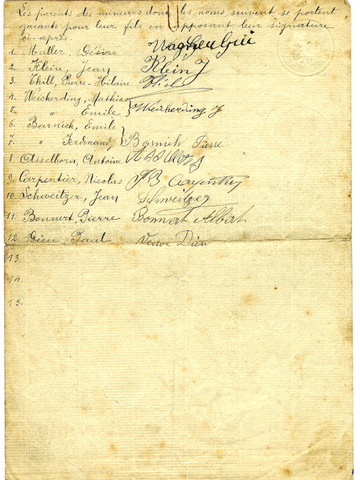 Les parents des mineurs dont les noms suivent se portent
garants pour leur fils en apposant leur signature
ci-après.
1. Muller, Désiré
2. Kleire, Jean Klein J
3. Thill, Pierre-Hilaire Thiel
4. Weicherding, Mathias
5. " Emile } Weicherding J
6. Barnich, Emile
7. " Ferdinand } Barnich Pierre
8. Asselborn, Antoine
9. Carpentier, Nicolas JB Carpentier
10. Schweitzer, Jean Schweitzer
11. Bonnert, Pierre Bonnert Albert
12. Dieu, Paul Veuve Dieu
13.
14.
15.